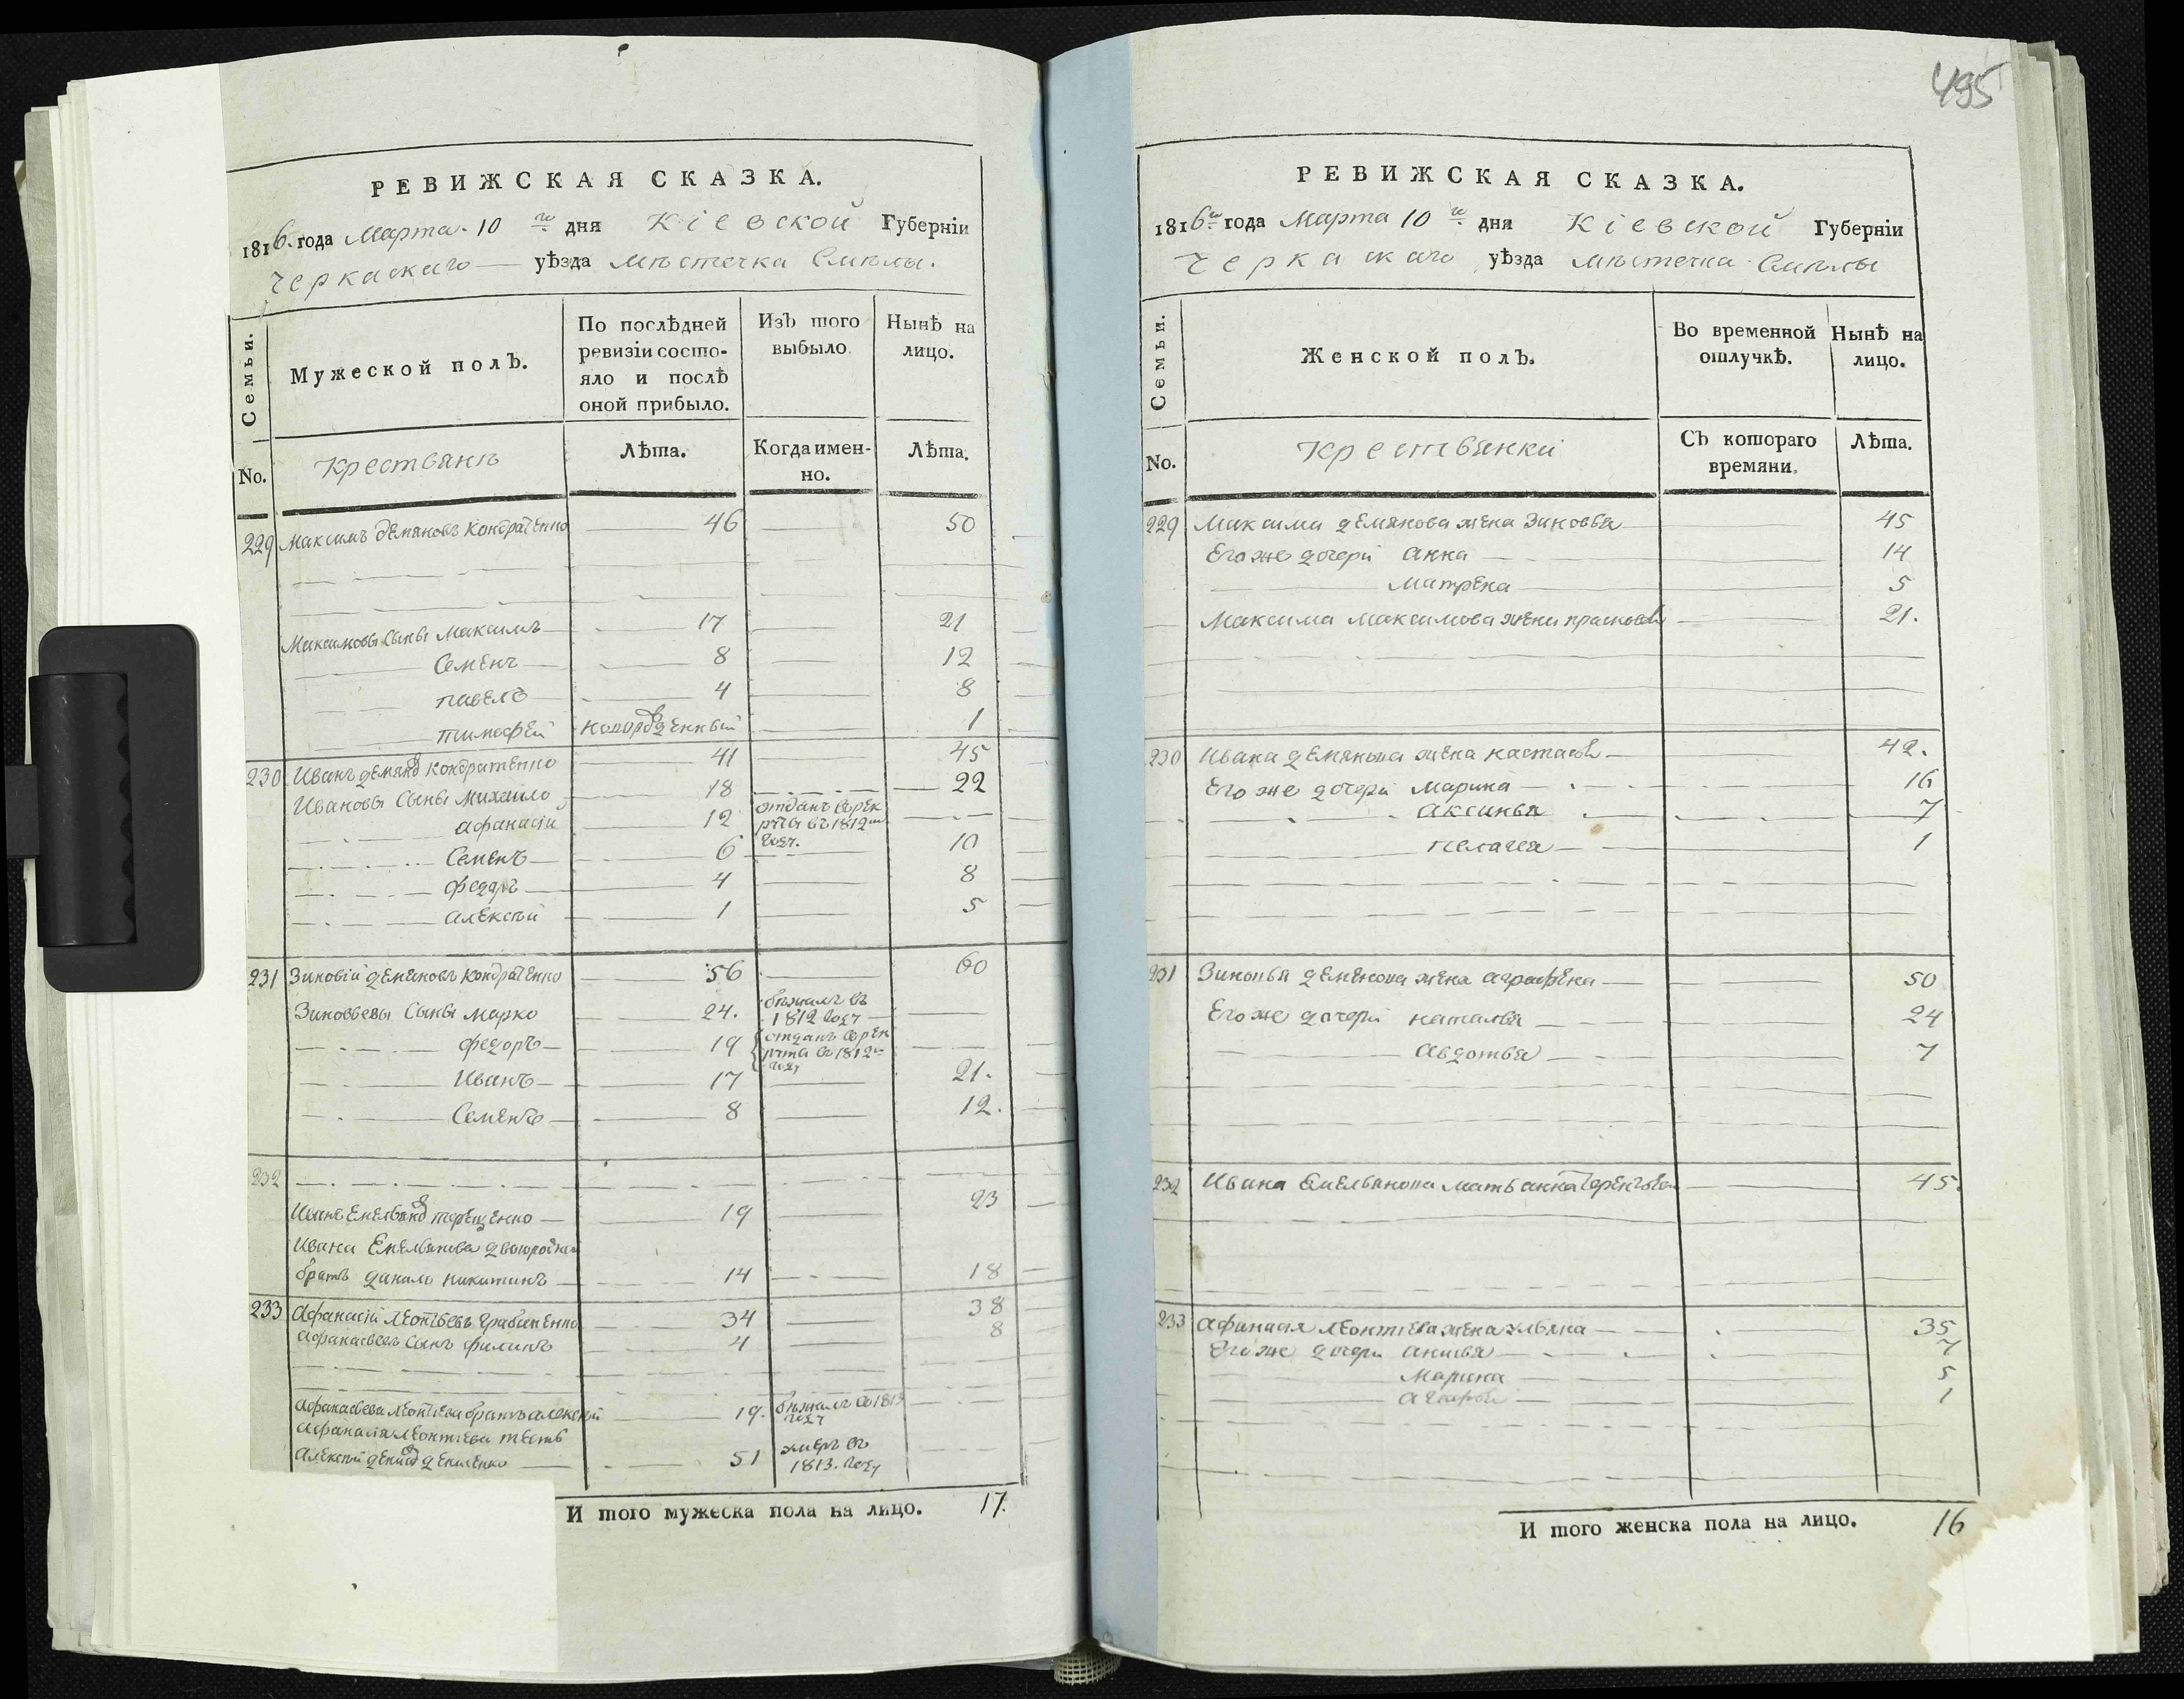 495
РЕВИЖСКАЯ СКАЗКА.
1816. года Марта 10 го дня Кіевской Губерніи
Черкаскаго уѣзда мѣстечка Смѣлы.
Семьи.
Мужеской полЪ.
По послѣдней ревизіи состояло и послѣ оной прибыло.
ИзЪ того выбыло
Нынѣ на лицо.
No.
Крестьянѣ
Лѣта.
Когда именно.
Лѣта.
229 Максимъ демяновъ Кондратенко 46 50
Максимовы сыны Максимъ 17 21
Семенъ 8 12
павелъ 4 8
тимофей новорожденный 1
230 Иванъ демяновъ кондратенко 41 45
Ивановы сыны Михайло 18 22
афанасій 12 отданъ в рекрута въ 1812м году.
Семенъ 6 10
федоръ 4 8
алексѣй 1 5
231 Зиновій демяновъ Кондратенко 56 60
Зиновьевы сыны Марко 24. бѣжалъ въ 1812 году
федоръ 19 отданъ в рекрута в 1812м году
Иванъ 17 21.
Семенъ 8 12.
232
Иванъ Емельяновъ терещенко 19 23
Ивана Емельянова двоюродной
братъ данило никитинъ 14 18
233 Афанасій Леонтьевъ 34 38
Афанасьевъ сынъ филипъ 4 8
Афанасьева Леонтіева братъ алексѣй 19. бѣжалъ в 1813 году
Афанасія Леонтіева тесть
Алексѣй 51 умеръ въ 1813. году
И того мужеска пола на лицо. 17.
РЕВИЖСКАЯ СКАЗКА.
1816го года Марта 10 го дня Кіевской Губерніи
Черкаскаго уѣзда мѣстечка Смѣлы
Семьи.
Женской полЪ.
Во временной отлучкѣ.
Нынѣ на лицо.
No.
Крестьянки
СЪ котораго времяни.
Лѣта.
229 Максима демянова жена Зиновья 45
Его же дочери анна 14
Матрена 5
Максима Максимова жена прасковья 21.
230 Ивана демянова жена настасья 42.
Его же дочери Марина 16
Аксинья 7
пелагея 1
231 Зиновья деменова жена аграфена 50
Его же дочери наталья 24
Авдотья 7
232 Ивана Емельянова мать анна 45.
233 Афанасія Леонтіева жена ульяна 35
Его же дочери 7
Марина 5
1
И того женска пола на лицо. 16